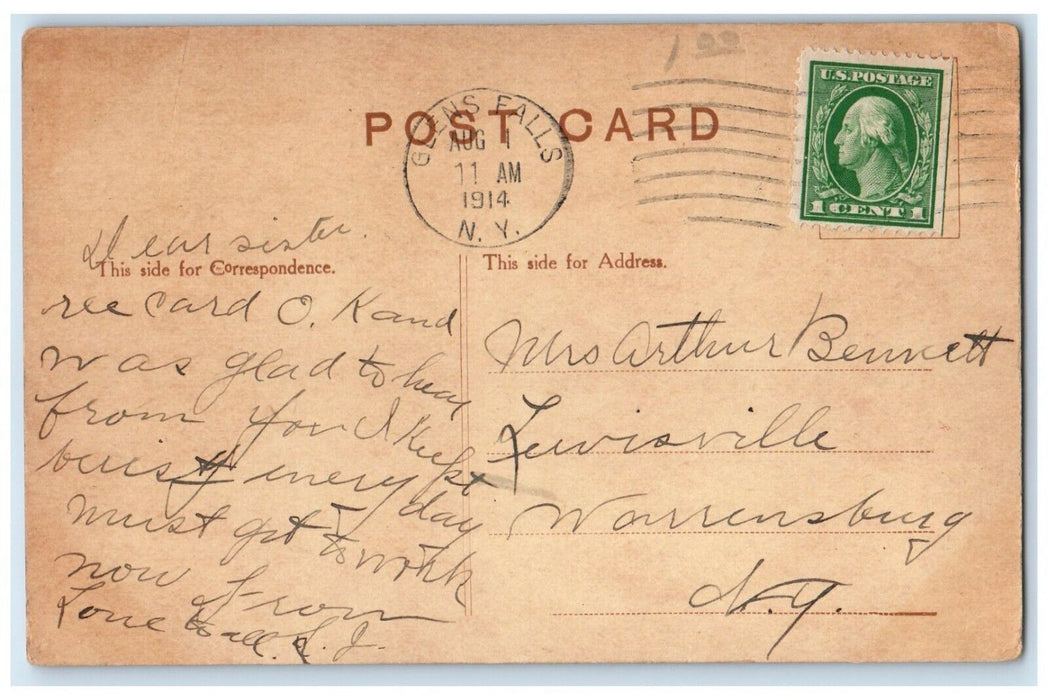 1 00
U.S. POSTAGE
1 CENT 1
POST CARD
GLENS FALLS
AUG 1
11 AM
1914
N. Y.
Dear sister.
This side for Correspondence.
rec Card O. K and
was glad to hear
from you I Keep
busy every day
must get to work
now From
Love to all. L. J.
This side for Address.
Mrs Arthur Bennett
Lewisville
Warrensburg
N.Y.